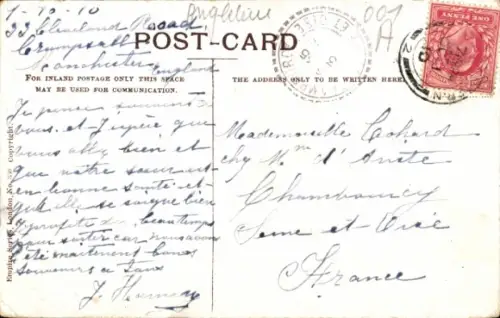 1-10-10
33 Cleveland Road
Crumpsall
Manchester
England
Angleterre
001
A
POST-CARD
FOR INLAND POSTAGE ONLY THIS SPACE
MAY BE USED FOR COMMUNICATION.
THE ADDRESS ONLY TO BE WRITTEN HERE.
ONE PENNY
Je pense souvent à
vous et j'espère que
vous allez bien et
que votre sœur est
en bonne santé et
qu'elle se soigne bien
beau temps
pour sortir car nous avons
été maintenant bons
souvenirs à tous
J
Mademoiselle Cohard
chez Mme d'Ariste
Chambourcy
Seine et Oise
France
London
Copyright